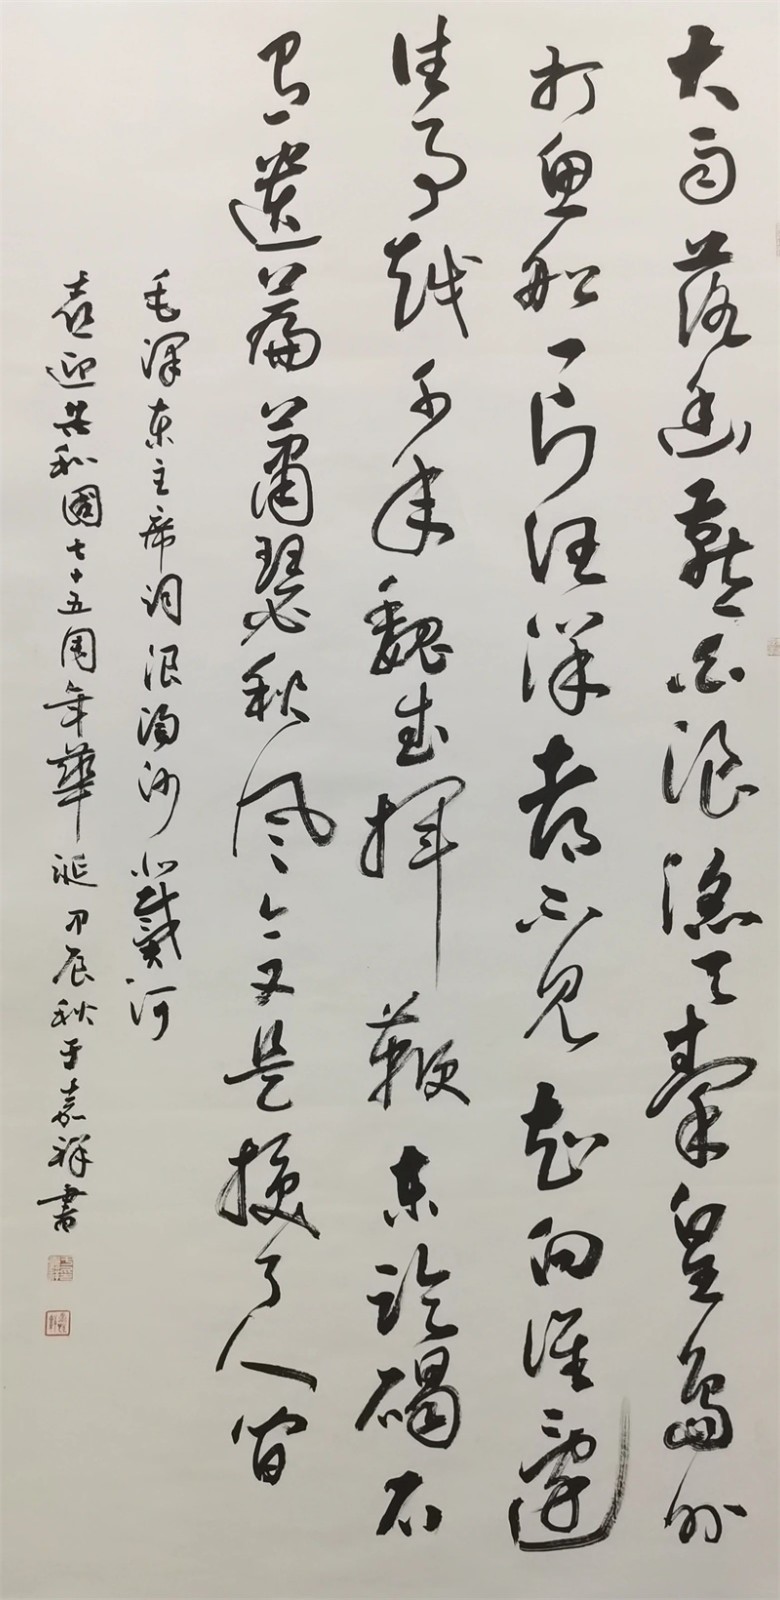 大雨落幽燕白浪滔天秦皇島外
打魚船一片汪洋都不见知向谁邊
往事越千年魏武揮鞭东临碣石
有遺篇蕭瑟秋风今又是换了人间
毛澤东主席词浪淘沙北戴河
喜迎共和國七十五周年華诞甲辰秋于嘉祥書